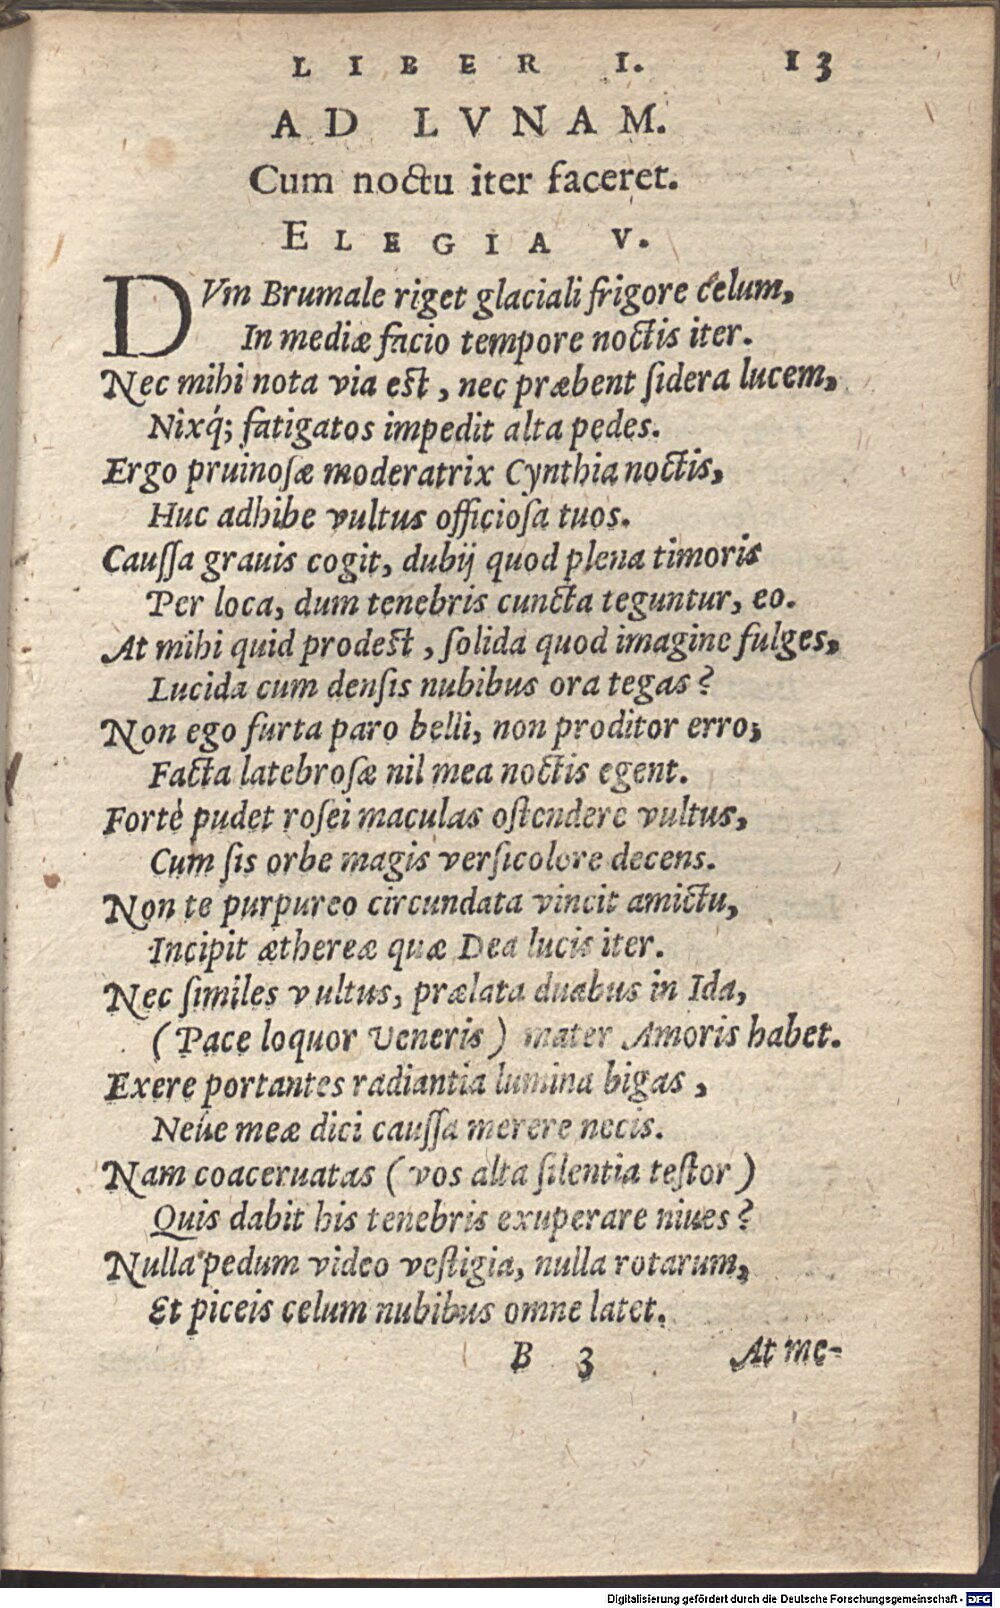 LIBER I. 13
AD LVNAM.
Cum noctu iter faceret.
ELEGIA V.
DVm Brumale riget glaciali frigore celum,
In mediæ facio tempore noctis iter.
Nec mihi nota via est, nec præbent ſidera lucem,
Nixq́; fatigatos impedit alta pedes.
Ergo pruinoſæ moderatrix Cynthia noctis,
Huc adhibe vultus officioſa tuos.
Cauſſa grauis cogit, dubij quod plena timoris
Per loca, dum tenebris cuncta teguntur, eo.
At mihi quid prodest, ſolida quod imagine fulges,
Lucida cum denſis nubibus ora tegas?
Non ego furta paro belli, non proditor erro;
Facta latebroſæ nil mea noctis egent.
Fortè pudet roſei maculas oſtendere vultus,
Cum ſis orbe magis verſicolore decens.
Non te purpureo circundata vincit amictu,
Incipit æthereæ quæ Dea lucis iter.
Nec ſimiles vultus, prælata duabus in Ida,
(Pace loquor Veneris) mater Amoris habet.
Exere portantes radiantia lumina bigas,
Neúe meæ dici cauſſa merere necis.
Nam coaceruatas (vos alta ſilentia teſtor)
Quis dabit his tenebris exuperare niues?
Nulla pedum video veſtigia, nulla rotarum,
Et piceis celum nubibus omne latet.
B 3 At me-
Digitalisierung gefördert durch die Deutsche Forschungsgemeinschaft - DFG